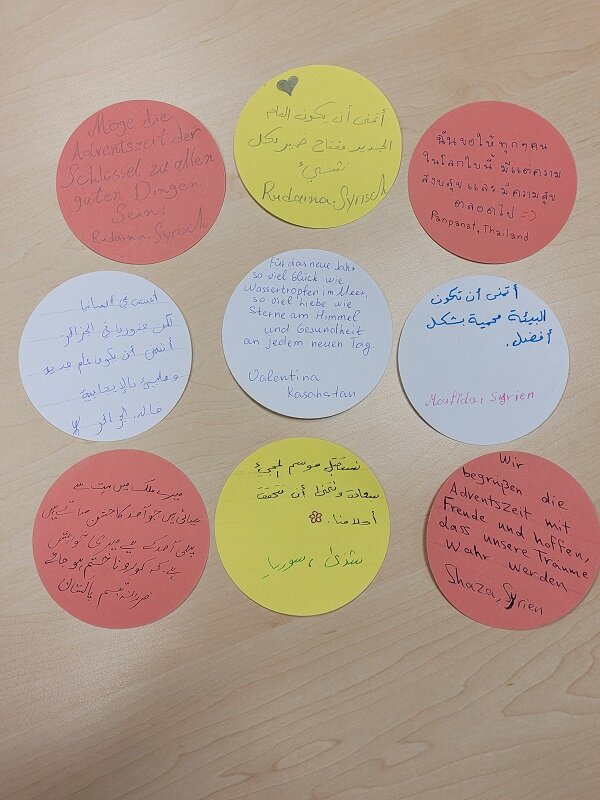 Möge die
Adventszeit der
Schlüssel zu allen
guten Dingen
Sein!
Rudaina. Syrisch
أتمنى أن يكون العام
الجديد مفتاح خير لكل
شيئ
Rudaina. Syrisch
ฉันขอให้ ทุกๆคน
ในโลกใบนี้ มีแต่ความ
สงบสุข และ มีความสุข
ตลอดไป =)
Panpanat, Thailand
أعيش في ألمانيا
لكن جذوري في الجزائر
أتمنى أن يكون عام جديد
و مليئ بالإيجابية
خالد، الجزائر
Für das neue Jahr
so viel Glück wie
Wassertropfen im Meer,
so viel Liebe wie
Sterne am Himmel
und Gesundheit
an jedem neuen Tag.
Valentina
Kasachstan
أتمنى أن تكون
البيئة محمية بشكل
أفضل.
Moufida, Syrien
میرے ملک میں بہت سے
عیسائی ہیں جو آمد کا جشن مناتے ہیں
میری خواہش
ہے کہ کورونا ختم ہو جائے
نستقبل موسم المجيئ
بسعادة ونتمنى أن تتحقق
أحلامنا.
شذى، سوريا
Wir
begrüßen die
Adventszeit mit
Freude und hoffen,
dass unsere Träume
wahr werden
Shaza, Syrien